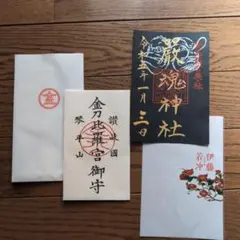 金
讃岐國
金刀比羅宮御守
琴平山
奥社
嚴魂神社
令和五年一月三日
伊藤
若冲